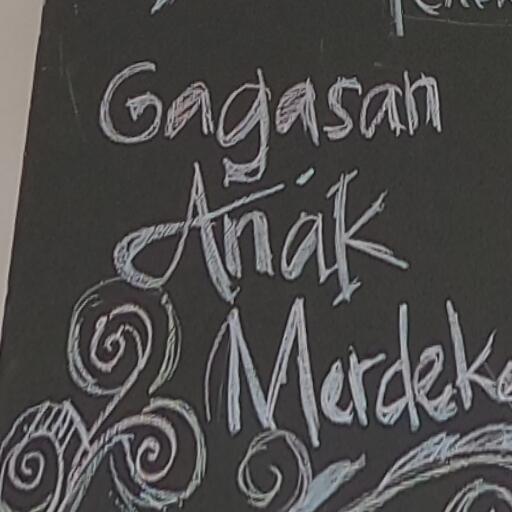 Gagasan
Anak
Merdeka